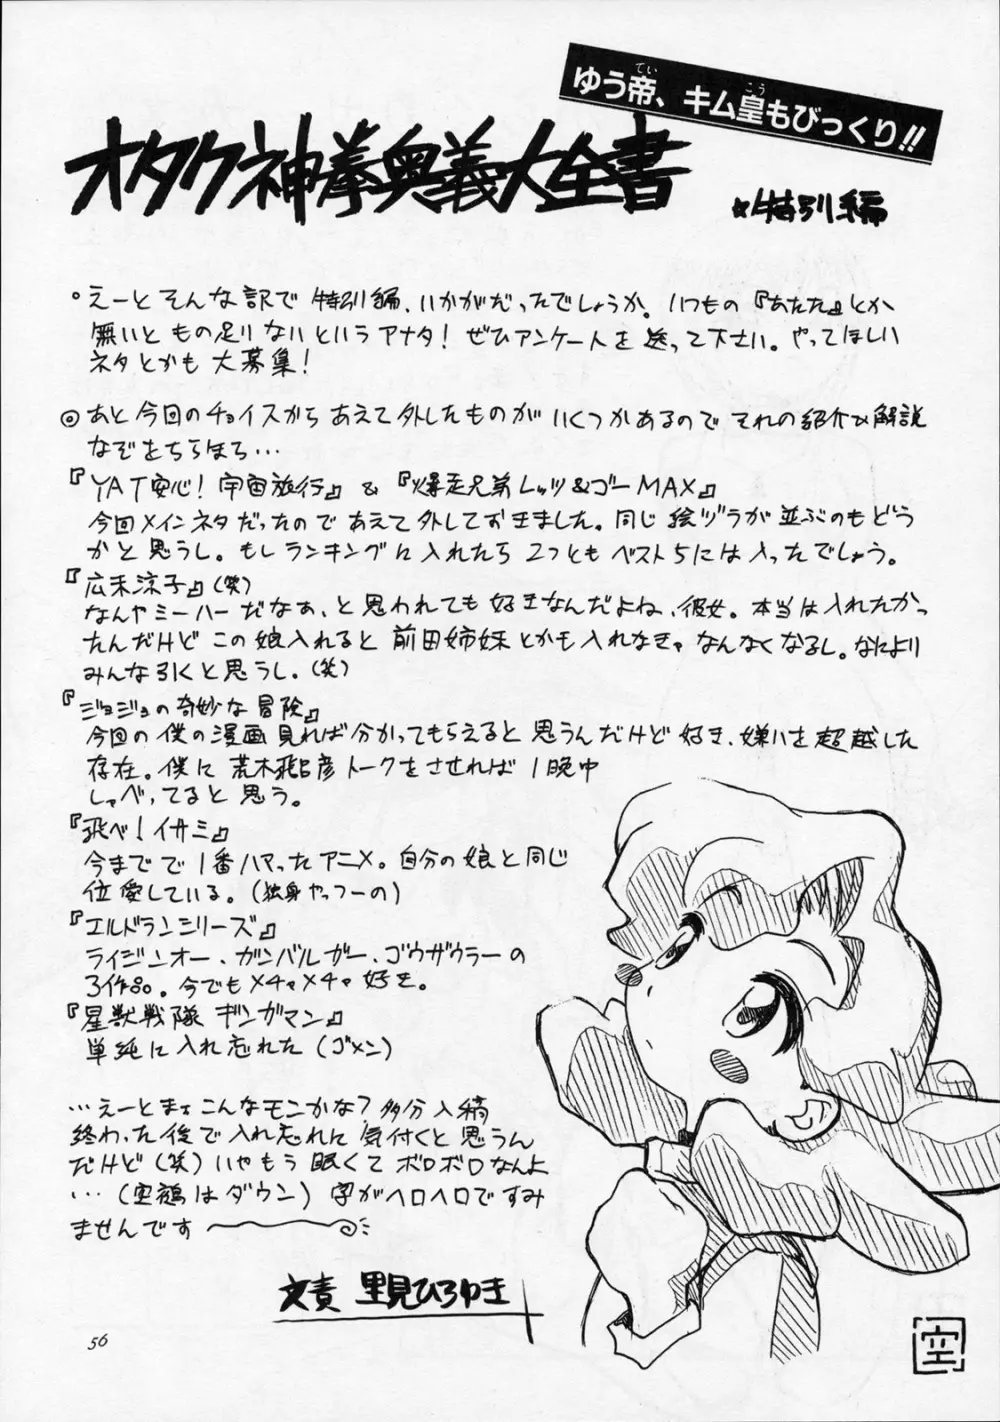 ゆう帝、キム皇もびっくり!!
オタク神拳奥義大全書
★特別編
°えーとそんな訳で特別編、いかがだったでしょうか。いつもの『あたた』とか
無いともの足りないというアナタ！ぜひアンケートを送って下さい。やってほしい
ネタとかも大募集！
◎あと今回のチョイスからあえて外したものがいくつかあるのでそれの紹介&解説
なぞをちらほら…
『YAT安心！宇宙旅行』&『爆走兄弟レッツ&ゴーMAX』
今回メインネタだったのであえて外しておきました。同じ絵ヅラが並ぶのもどう
かと思うし。もしランキングに入れたら2つともベスト5には入ったでしょう。
『広末涼子』(笑)
なんやミーハーだなぁ、と思われても好きなんだよね、彼女。本当は入れたかっ
たんだけどこの娘入れると前田姉妹とかも入れなきゃなんなくなるし。なにより
みんな引くと思うし。(笑)
『ジョジョの奇妙な冒険』
今回の僕の漫画見れば分かってもらえると思うんだけど好き、嫌いを超越した
存在。僕に荒木飛呂彦トークをさせれば1晩中
しゃべってると思う。
『飛べ！イサミ』
今までで1番ハマったアニメ。自分の娘と同じ
位愛している。(独身やっつーの)
『エルドランシリーズ』
ライジンオー、ガンバルガー、ゴウザウラーの
3作品。今でもメチャメチャ好き。
『星獣戦隊ギンガマン』
単純に入れ忘れた(ゴメン)
…えーとまぁこんなモンかな？多分入稿
終わった後で入れ忘れに気付くと思うん
だけど(笑)いやもう眠くてボロボロなんよ
…(空鶴はダウン)字がヘロヘロですみ
ませんです
文責 里見ひろゆき
56
空